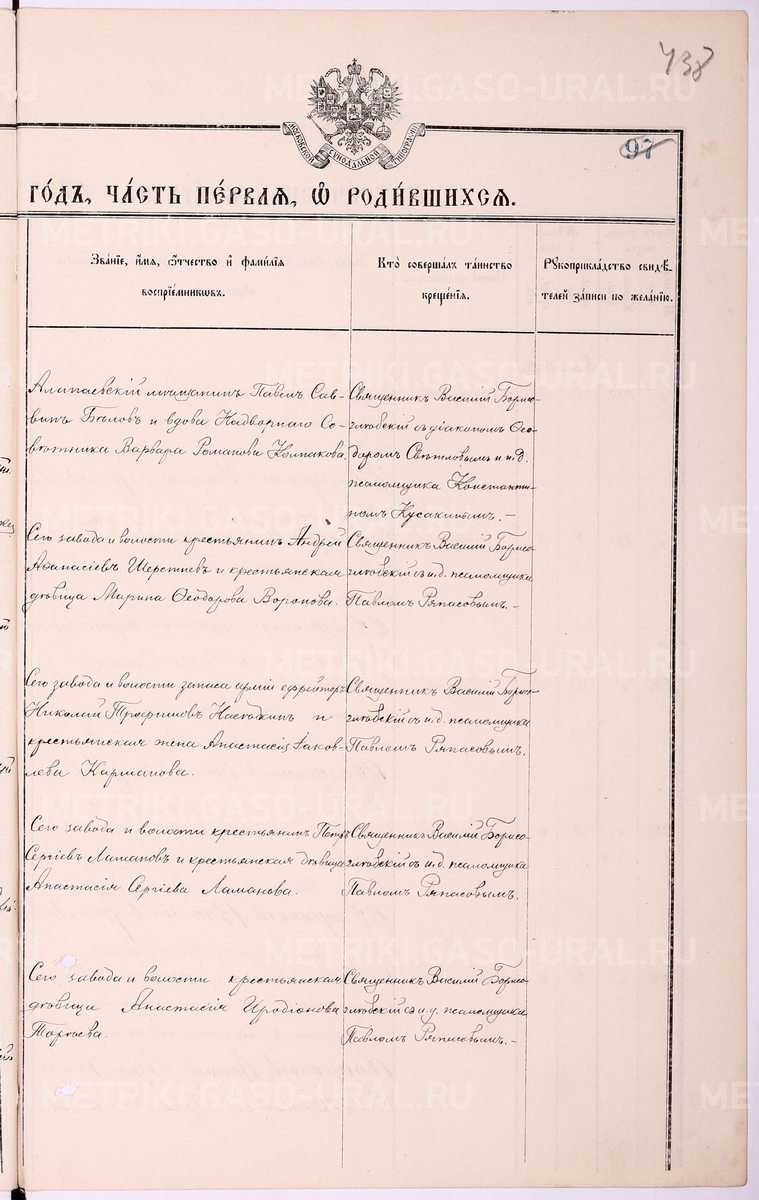 438
97
МОСКОВСКОЙ СѴНОДАЛЬНОЙ ТИПОГРАФІИ
ГО́ДЪ, ЧА́СТЬ ПЕ́РВАЯ, Ѽ РОДИ́ВШИХСЯ.
Зва́ніе, и́мя, ѻ́тчество и фами́лія
воспріе́мниковъ.
Кто̀ совершалъ та́инство
креще́нія.
Рукоприкла́дство свидѣ́-
телей за́писи по жела́нію.
Алапаевскій мѣщанинъ Павелъ Сав-
винъ Бѣловъ и вдова Надворнаго Со-
вѣтника Варвара Романова Колпакова.
Священникъ Василій Борисо-
глѣбскій съ діакономъ Ѳео-
доромъ Свѣтловымъ и и. д.
псаломщика Константи-
номъ Кусакинымъ. –
Сего завода и волости крестьянинъ Андрей
Аѳанасіевъ Шерстневъ и крестьянская
дѣвица Марина Ѳеодорова Воронова.
Священникъ Василій Борисо-
глѣбскій съ и. д. псаломщика
Павломъ Ряпасовымъ. –
Сего завода и волости запаса арміи ефрейторъ
Николай Трофимовъ и
крестьянская жена Анастасія Іаков-
лева Карманова.
Священникъ Василій Борисо-
глѣбскій съ и. д. псаломщика
Павломъ Ряпасовымъ.
Сего завода и волости крестьянинъ Петръ
Сергіевъ Ламановъ и крестьянская дѣвица
Анастасія Сергіева Ламанова.
Священникъ Василій Борисо-
глѣбскій съ и. д. псаломщика
Павломъ Ряпасовымъ.
Сего завода и волости крестьянская
дѣвица Анастасія Иродіонова
Священникъ Василій Борисо-
глѣбскій съ и. д. псаломщика
Павломъ Ряпасовымъ. –
METRIKI.GASO-URAL.RU